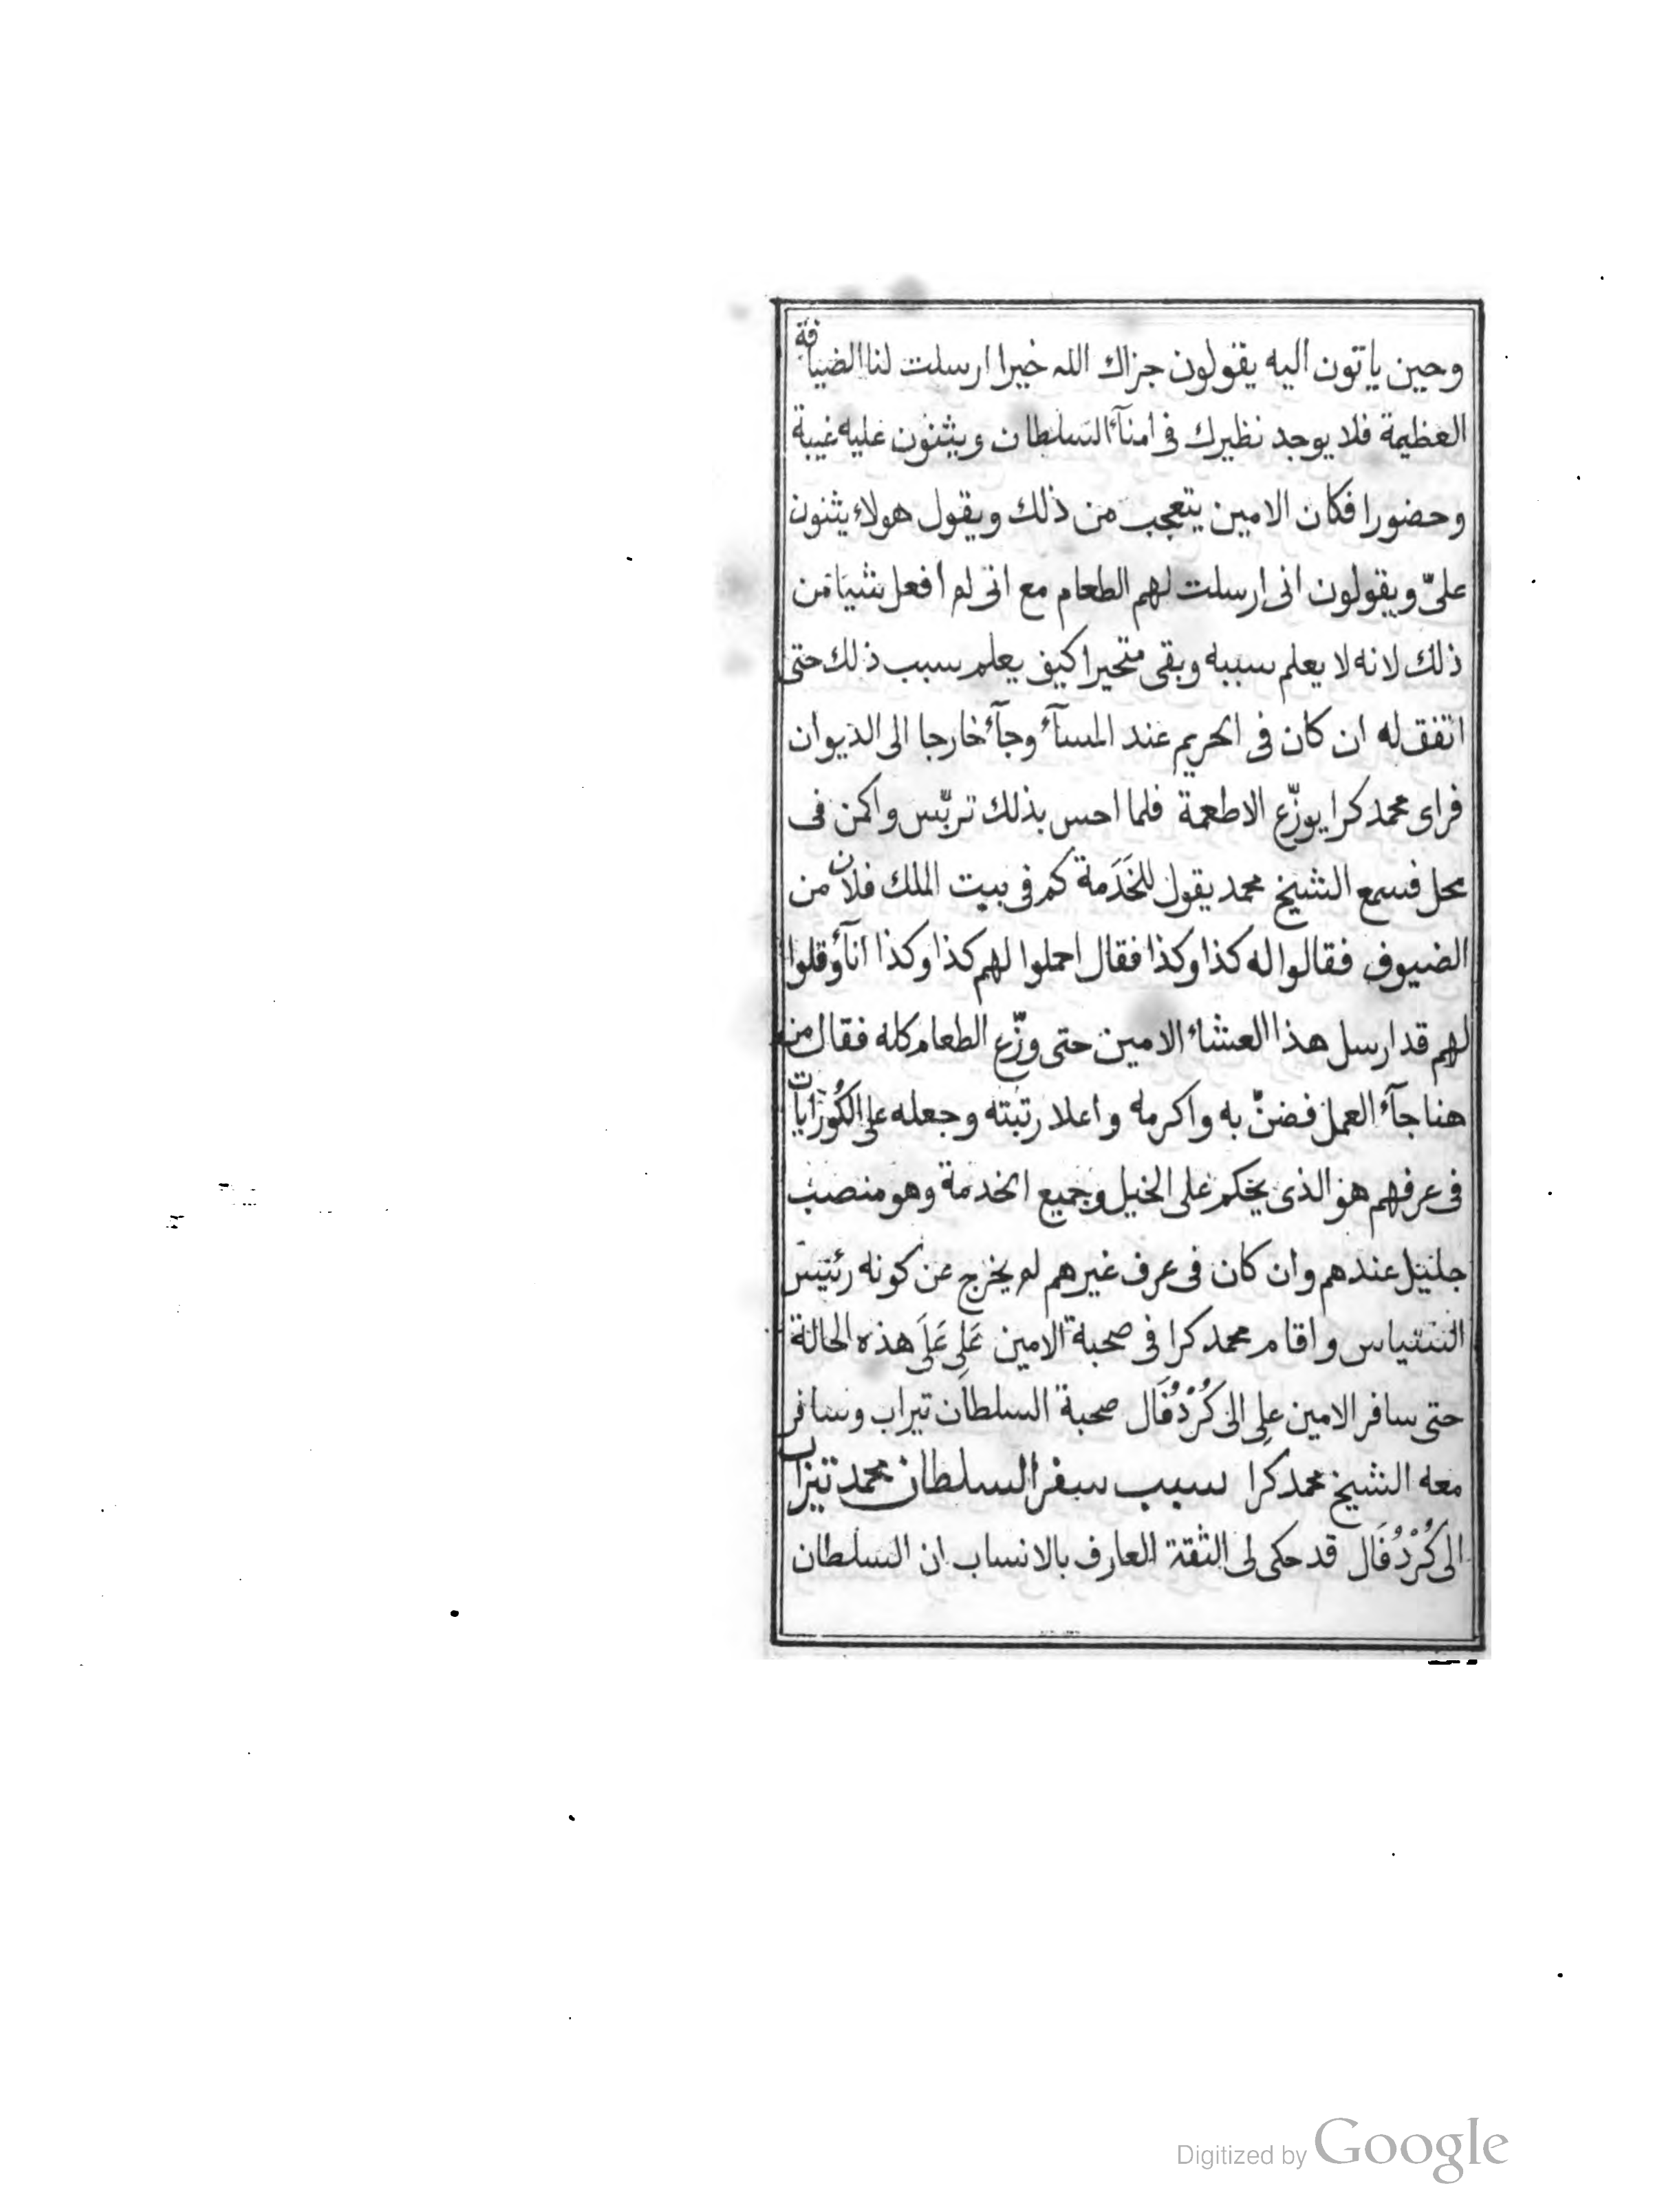 وحين ياتون اليه يقولون جزاك الله خيرا ارسلت لنا الضيافة
العظيمة فلا يوجد نظيرك فى امنآء السلطان ويثنون عليه غيبة
وحضورا فكان الامين يتعجب من ذلك ويقول هولاء يثنون
علىّ ويقولون انى ارسلت لهم الطعام مع انى لم افعل شيا من
ذلك لانه لا يعلم سببه وبقى متحيرا كيف يعلم سبب ذلك حتى
اتفق له ان كان فى الحريم عند المسآء وجآء خارجا الى الديوان
فراى محمد كرا يوزّع الاطعمة فلما احس بذلك تربّس واكمن فى
محل فسمع الشيخ محمد يقول للخَدَمة كم فى بيت الملك فلان من
الضيوف فقالوا له كذا وكذا فقال احملوا لهم كذا وكذا انآء وقلوا
لهم قد ارسل هذا العشاء الامين حتى وزّع الطعام كله فقال من
هنا جآء العمل فضنّ به واكرمه واعلا رتبته وجعله على الكُورَايات
فى عرفهم هو الذى يحكم على الخيل وجميع الخدمة وهو منصب
جليل عندهم وان كان فى عرف غيرهم لم يخرج عن كونه رئيس
السياس واقام محمد كرا فى صحبة الامين عَلِى عَلَى هذه الحالة
حتى سافر الامين علِى الى كُرْدُفَال صحبة السلطان تيراب وسافر
معه الشيخ محمد كرا سبب سفر السلطان محمد تيراب
الى كُرْدُفَال قد حكى لى الثقة العارف بالانساب ان السلطان
Digitized by Google